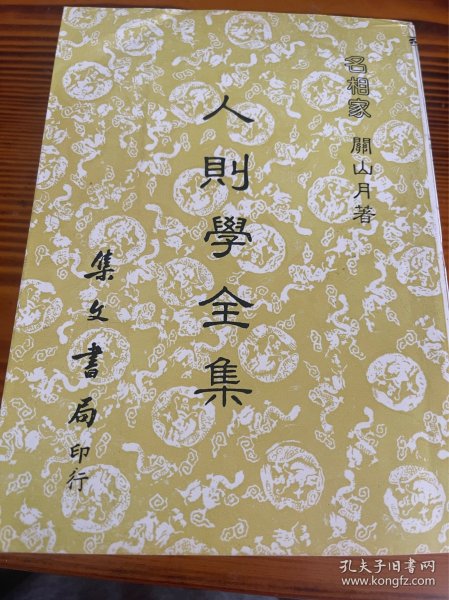 名相家 關山月著
人則學全集
集文書局印行
孔夫子旧书网
www.kongfz.com